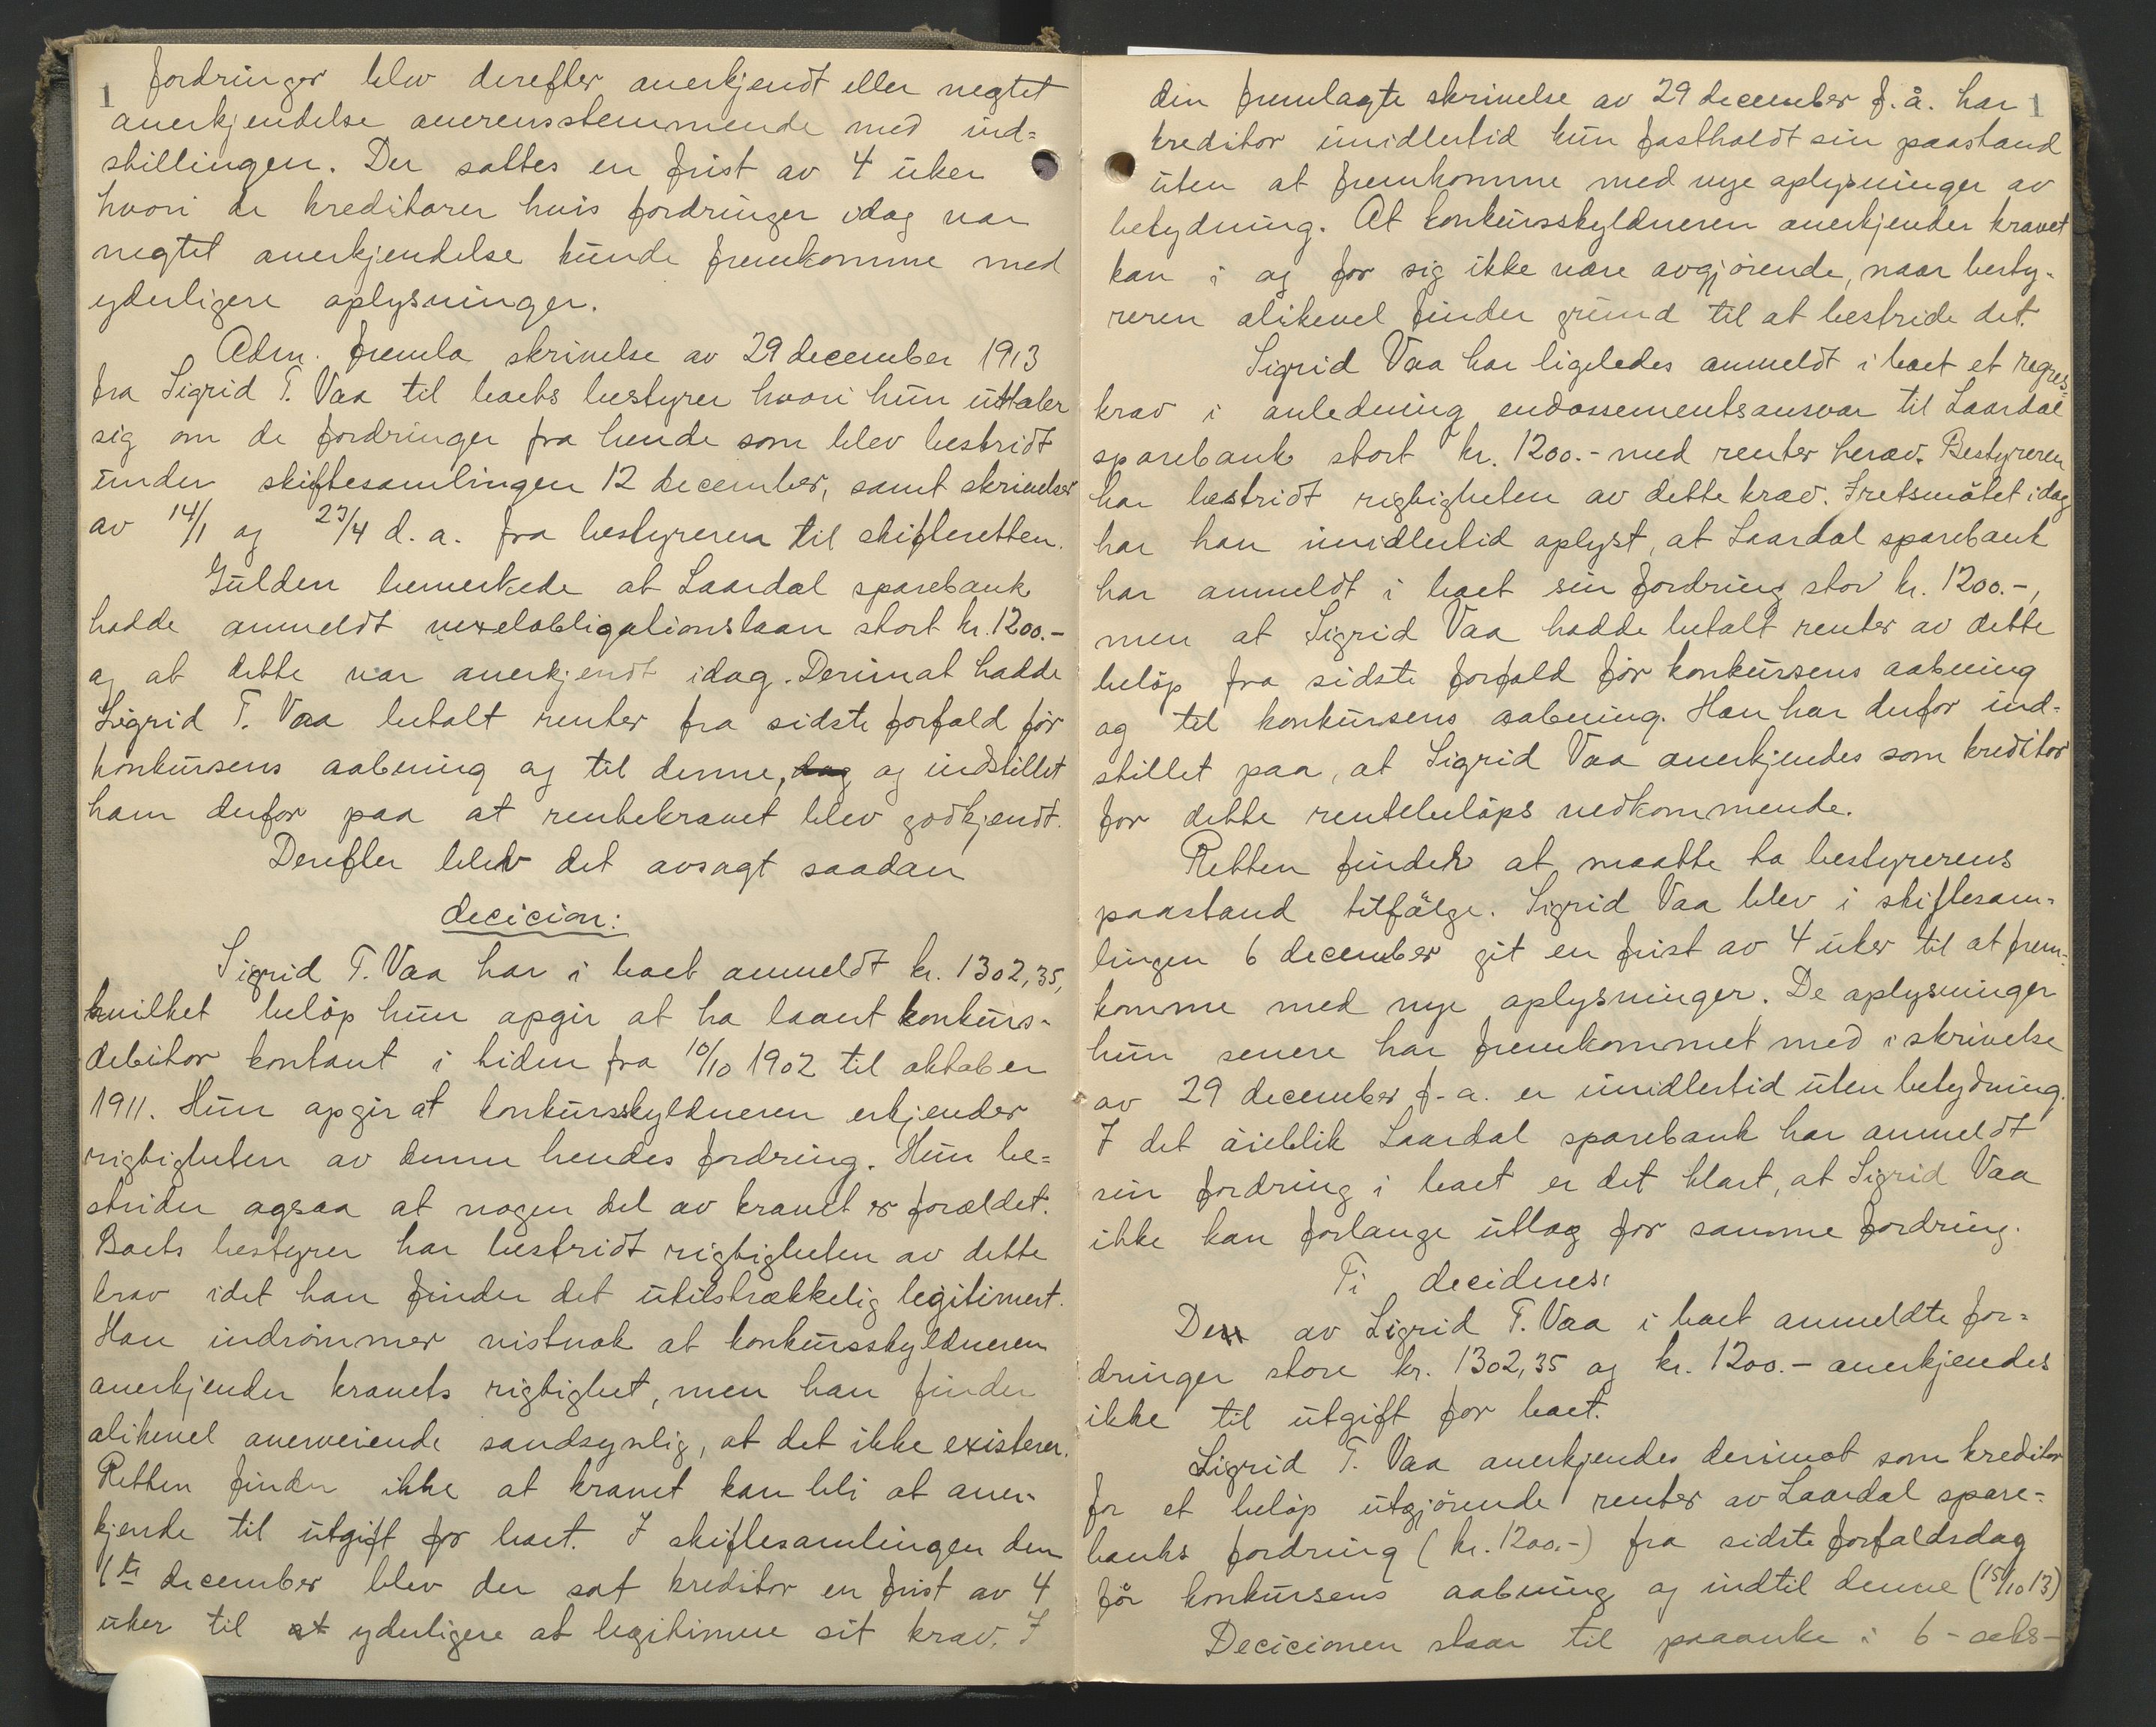 1
fordringer blev derefter anerkjendt eller negtet
anerkjendelse overensstemmende med ind=
stillingen. Der sattes en frist av 4 uker
hvori de kreditorer hvis fordringer idag var
negtet anerkjendelse kunde fremkomme med
yderligere oplysninger.
Adm. fremla skrivelse av 29 december 1913
fra Sigrid T. Vaa til boets bestyrer hvori hun uttaler
sig om de fordringer fra hende som blev bestridt
under skiftesamlingen 12 december, samt skrivelser
av 14/1 og 23/4 d. a. fra bestyreren til skifteretten.
Gulden bemerkede at Laardal sparebank
hadde anmeldt vexelobligationslaan stort kr. 1200.-
og at dette var anerkjendt idag. Derimot hadde
Sigrid T. Vaa betalt renter fra sidste forfald før
konkursens aabning og til denne, dog og indstillet
ham derfor paa at rentekravet blev godkjendt.
Derefter blev det avsagt saadan
decicion:
Sigrid T. Vaa har i boet anmeldt kr. 1302,35,
hvilket beløp hun opgir at ha laant konkurs-
debitor kontant i tiden fra 10/10 1902 til oktober
1911. Hun opgir at konkursskyldneren erkjender
rigtigheten av denne hendes fordring. Hun be=
strider ogsaa at nogen del av kravet er forældet.
Boets bestyrer har bestridt rigtigheten av dette
krav idet han finder det utilstrækkelig legitimert.
Han indrømmer vistnok at konkursskyldneren
anerkjender kravets rigtighet, men han finder
alikevel overveiende sandsynlig, at det ikke existerer.
Retten finder ikke at kravet kan bli at aner-
kjende til utgift for boet. I skiftesamlingen den
6te december blev der sat kreditor en frist av 4
uker til at yderligere at legitimere sit krav. I
1
den fremlagte skrivelse av 29 december f. å. har
kreditor imidlertid kun fastholdt sin paastand
uten at fremkomme med nye oplysninger av
betydning. At konkursskyldneren anerkjender kravet
kan i og for sig ikke være avgjørende, naar besty-
reren alikevel finder grund til at bestride det.
Sigrid Vaa har ligeledes anmeldt i boet et regres=
krav i anledning endossementsansvar til Laardal
sparebank stort kr. 1200.- med renter herav. Bestyreren
har bestridt rigtigheten av dette krav. I retsmøtet idag
har han imidlertid oplyst, at Laardal sparebank
har anmeldt i boet sin fordring stor kr. 1200.-,
men at Sigrid Vaa hadde betalt renter av dette
beløp fra sidste forfald før konkursens aabning
og til konkursens aabning. Han har derfor ind-
stillet paa, at Sigrid Vaa anerkjendes som kreditor
for dette rentebeløps vedkommende.
Retten finder at maatte ta bestyrerens
paastand tilfølge. Sigrid Vaa blev i skiftesam-
lingen 6 december git en frist av 4 uker til at frem-
komme med nye oplysninger. De oplysninger
hun senere har fremkommet med i skrivelse
av 29 december f. a. er imidlertid uten betydning.
I det øieblik Laardal sparebank har anmeldt
sin fordring i boet er det klart, at Sigrid Vaa
ikke kan forlange utlag for samme fordring.
Ti decideres:
De av Sigrid T. Vaa i boet anmeldte for=
dringer store kr. 1302,35 og kr. 1200.- anerkjendes
ikke til utgift for boet.
Sigrid T. Vaa anerkjendes derimot som kreditor
for et beløp utgjørende renter av Laardal spare=
banks fordring (kr. 1200.-) fra sidste forfaldsdag
før konkursens aabning og indtil denne (15/10 13)
Decicionen staar til paaanke i 6 - seks -